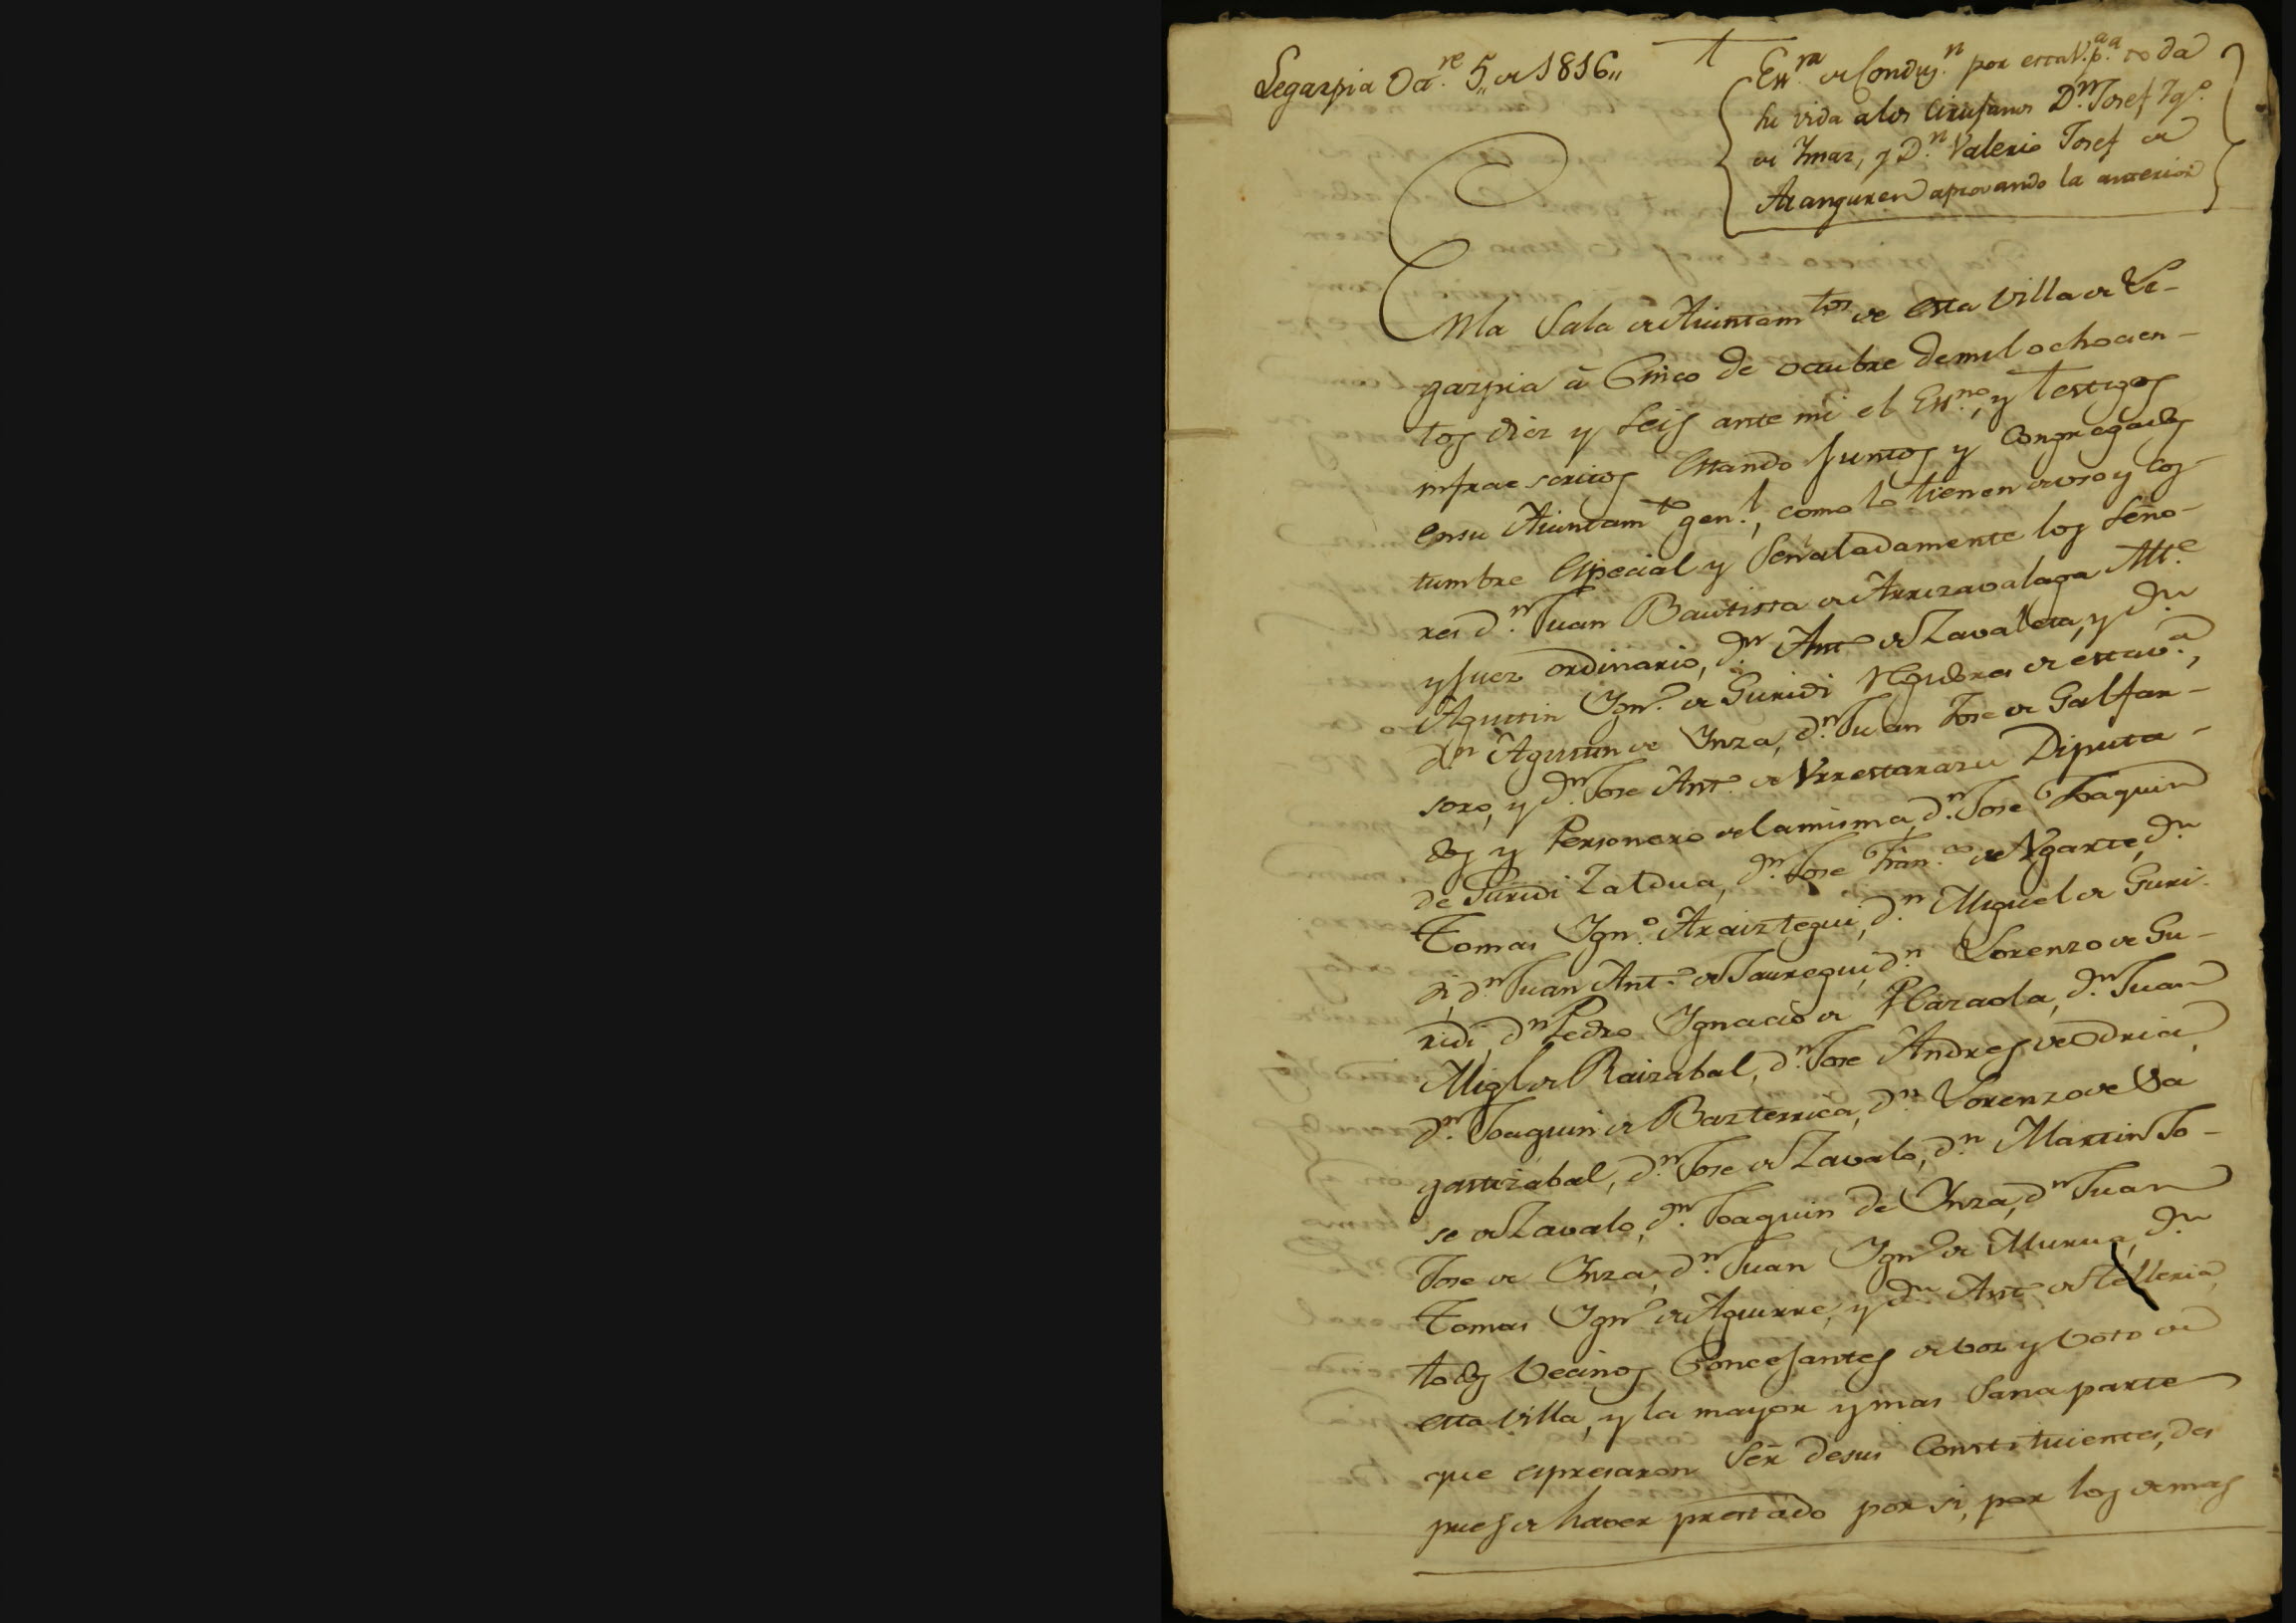 Legazpia Oct.re 5,, de 1816,,
Ess.ra de Conduz.n por esta V. p.a toda
su vida a los Cirujanos D.n Josef Ig.o
de Ymaz, y D.n Valerio Josef de
Aranguren aprovando la anterior
En la Sala de Aiuntam.tos de esta Villa de Le-
gazpia â Cinco de octubre de mil ochocien-
tos diez y seis ante mi el Ess.no, y testigos
infraescritos estando juntos y congregados
en su Aiuntam.to gen.l, como lo tienen de uso y cos-
tumbre especial y señaladamente los Seño-
res d.n Juan Bautista de Arrizavalaga Alc.e
y Juez ordinario, d.n Ant.o de Zavaleta, y d.n
Agustin Ign.o de Guridi Regidores de esta v.a,
d.n Agustin de Ynza, d.n Juan Jose de Galfar-
soro, y d.n Jose Ant.o de Urrestarazu Diputa-
dos y Personero de la misma, d.n Jose Joaquin
de Guridi Zaldua, d.n Jose Fran.co de Ugarte, d.n
Tomas Ign.o Araiztegui, d.n Miguel de Guri-
di, d.n Juan Ant.o de Jauregui, d.n Lorenzo de Gu-
ridi, d.n Pedro Ignacio de Plazaola, d.n Juan
Migl de Raizabal, d.n Jose Andres de Odria,
d.n Joaquin de Bazterrica, d.n Lorenzo de Va
gastizabal, d.n Jose de Zavalo, d.n Martin Jo-
se de Zavalo, d.n Joaquin de Ynza, d.n Juan
Jose de Ynza, d.n Juan Ign.o de Murua, d.n
Tomas Ign.o de Aguirre, y d.n Ant.o de Telleria,
todos Vecinos Concejantes de voz y voto de
esta Villa, y la mayor y mas sana parte
que espresaron ser de sus Constituientes, des
pues de haver prestado por si, por los demas